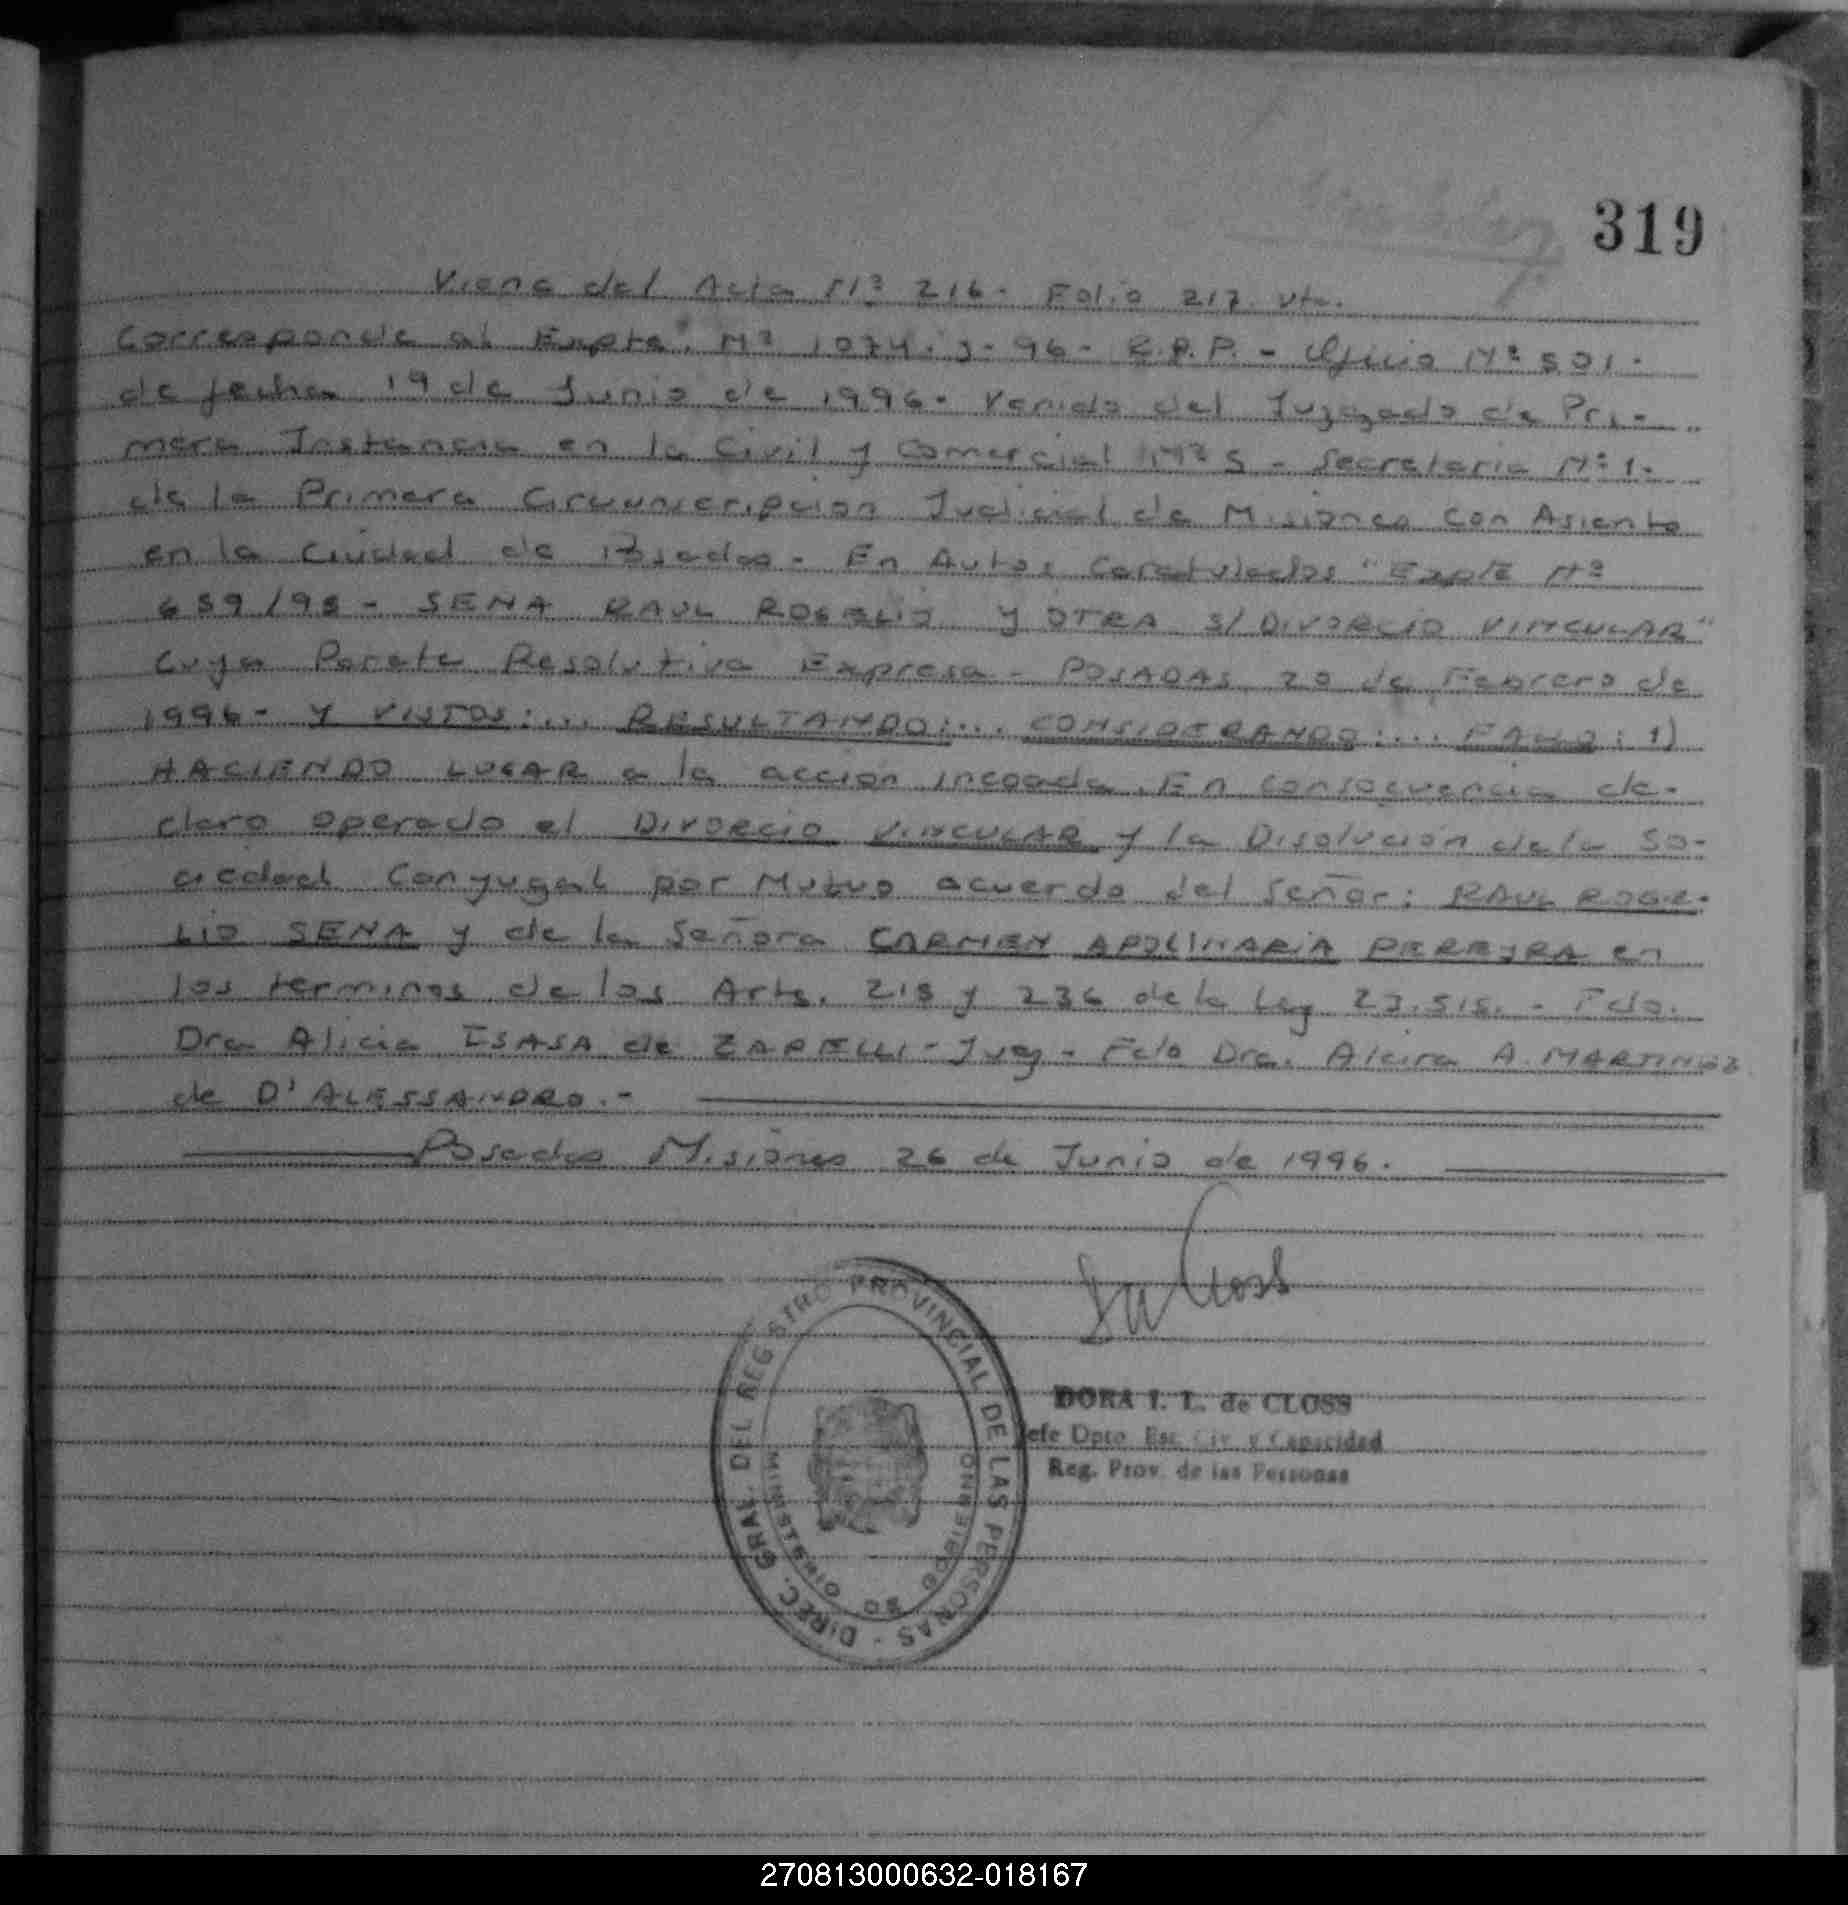 319
Viene del Acta Nº 216. Folio 217. vto.
Corresponde al Expte. Nº 1074. J. 96 - R.P.P. - Oficio Nº 501.
de fecha 19 de Junio de 1996. Venido del Juzgado de Pri-
mera Instancia en lo Civil y Comercial Nº 5 - Secretaria Nº 1.
de la Primera Circunscripcion Judicial de Misiones con Asiento
en la Ciudad de Posadas - En Autos Caratulados "Expte Nº
659/95 - SENA RAUL ROGELIO y OTRA S/ DIVORCIO VINCULAR"
Cuya Parete Resolutiva Expresa - POSADAS, 20 de Febrero de
1996 - Y VISTOS:... RESULTANDO:... CONSIDERANDO:... FALLO: 1)
HACIENDO LUGAR a la acción incoada. En consecuencia de-
claro operado el DIVORCIO VINCULAR y la Disolución de la So-
ciedad Conyugal por Mutuo acuerdo del Señor: RAUL ROGE-
LIO SENA y de la Señora CARMEN APOLINARIA PEREYRA en
los terminos de los Arts. 215 y 236 de la Ley 23.515. - Fdo.
Dra Alicia ISASA de ZAPELLI - Juez - Fdo Dra. Alcira A. MARTINEZ
de D'ALESSANDRO.-
Posadas Misiones 26 de Junio de 1996.
DIREC. GRAL. DEL REGISTRO PROVINCIAL DE LAS PERSONAS -
MINISTERIO DE GOBIERNO
DORA I. L. de CLOSS
Jefe Dpto. Est. Civ. y Capacidad
Reg. Prov. de las Personas
270813000632-018167